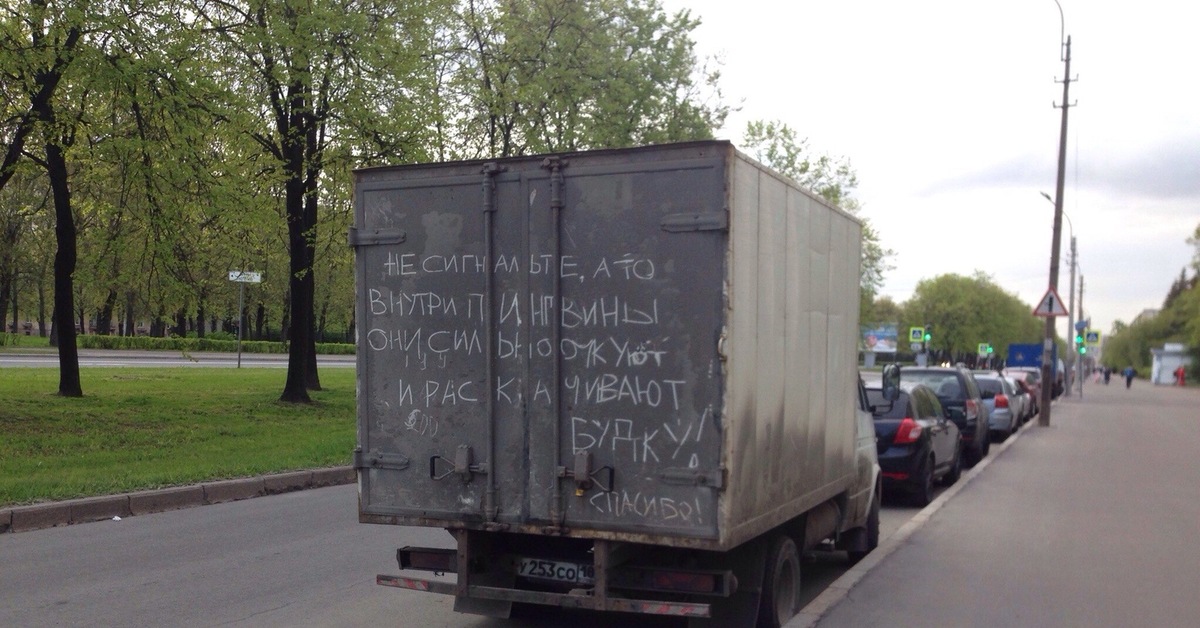 НЕ СИГНАЛЬТЕ, А ТО
ВНУТРИ ПИНГВИНЫ
ОНИ СИЛЬНО ОЧКУЮТ
И РАСКАЧИВАЮТ
БУДКУ!
СПАСИБО!
У253СО